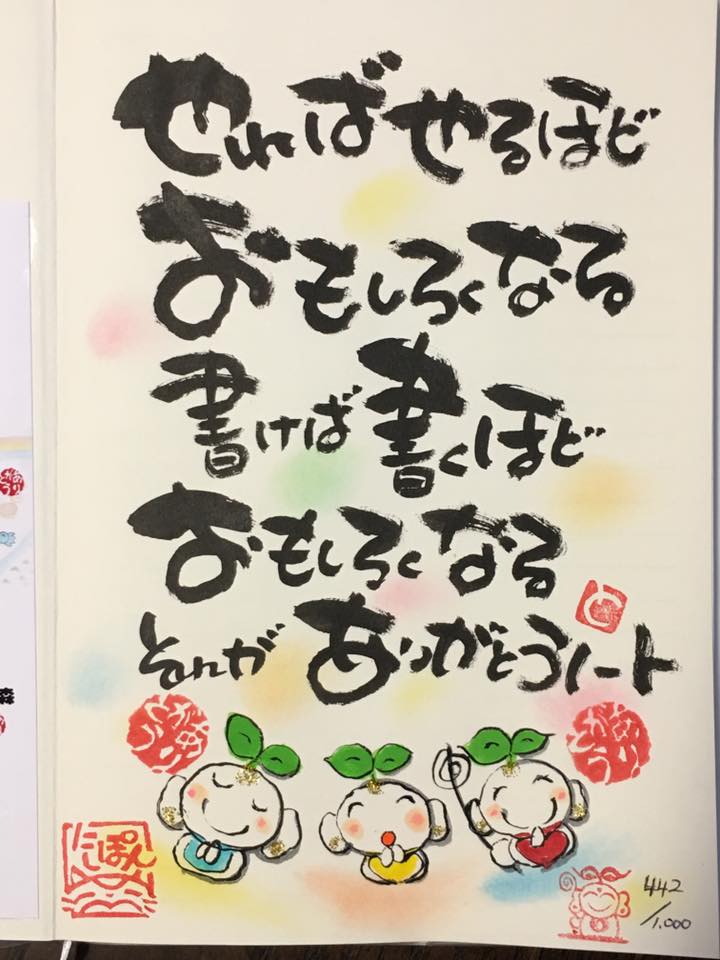 やればやるほど
おもしろくなる
書けば書くほど
おもしろくなる
それがありがとうノート
にっぽん
442/1.000
森